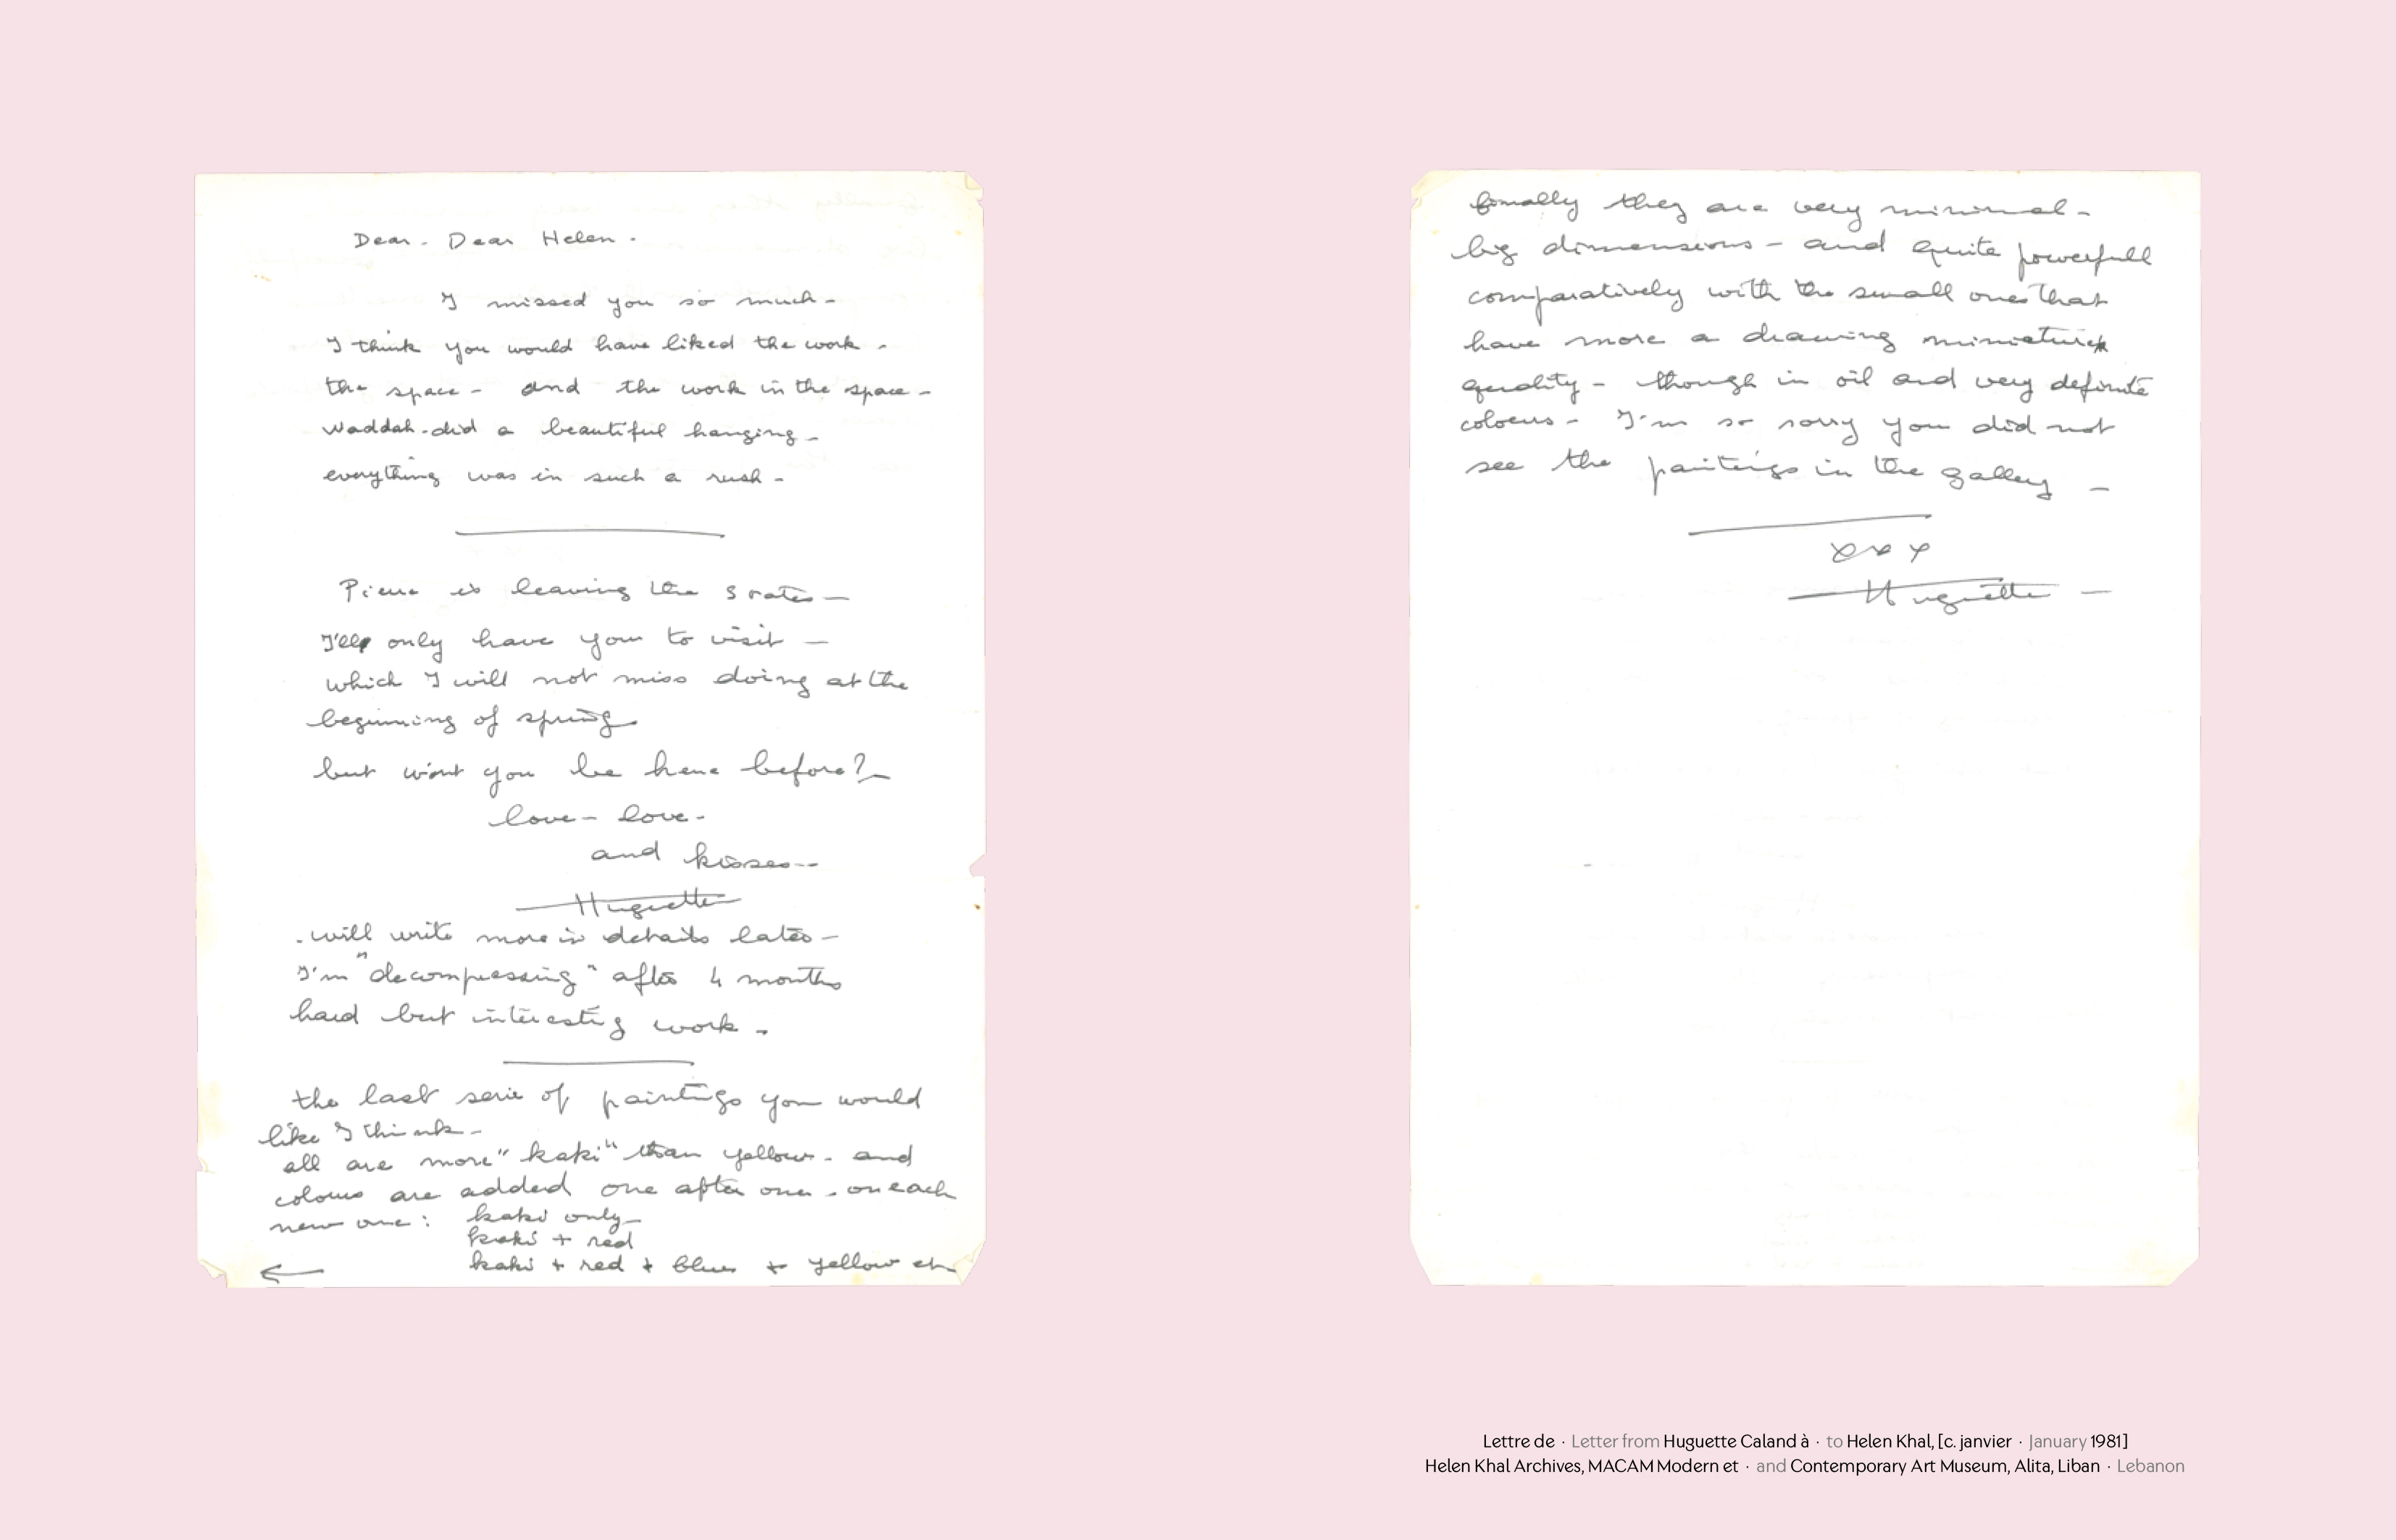 Dear. Dear Helen.
I missed you so much -
I think you would have liked the work -
the space - and the work in the space -
Waddah - did a beautiful hanging -
everything was in such a rush -
Pierre is leaving the States —
I'll only have you to visit —
which I will not miss doing at the
beginning of spring
but wont you be here before? —
love - love -
and kisses --
Huguette
. will write more in details later -
I'm "decompressing" after 4 months
hard but interesting work .
the last serie of paintings you would
like I think -
all are more "kaki" than yellow - and
colours are added one after one . on each
new one : kaki only -
kaki + red
kaki + red + blue + yellow etc
←
formally they are very minimal -
big dimensions - and quite powerfull
comparatively with the small ones that
have more a drawing miniature
quality - though in oil and very definite
colours - I'm so sorry you did not
see the paintings in the gallery —
xxx
Huguette —
Lettre de · Letter from Huguette Caland à · to Helen Khal, [c. janvier · January 1981]
Helen Khal Archives, MACAM Modern et · and Contemporary Art Museum, Alita, Liban · Lebanon